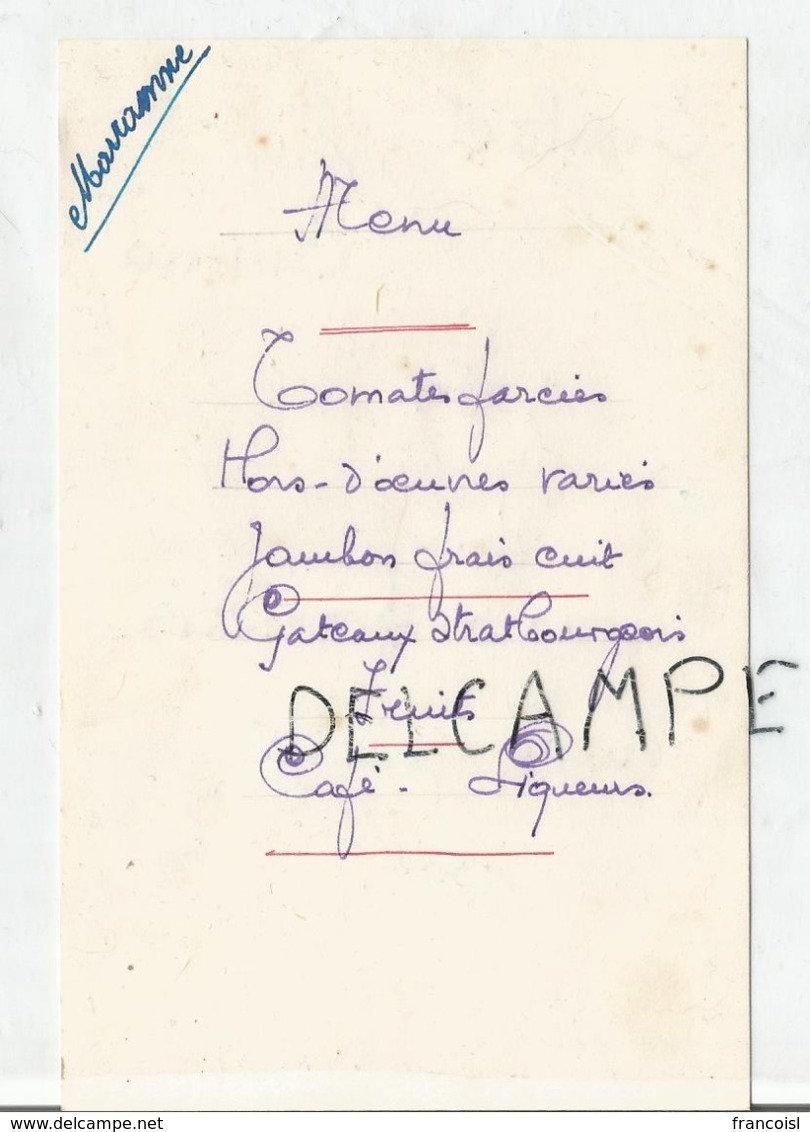 Marianne
Menu
Tomates farcies
Hors-d'œuvres variés
Jambon frais cuit
Gateaux Stratbourgeois
Fruits
DELCAMPE
Café - Liqueurs.
www.delcampe.net
francoisl